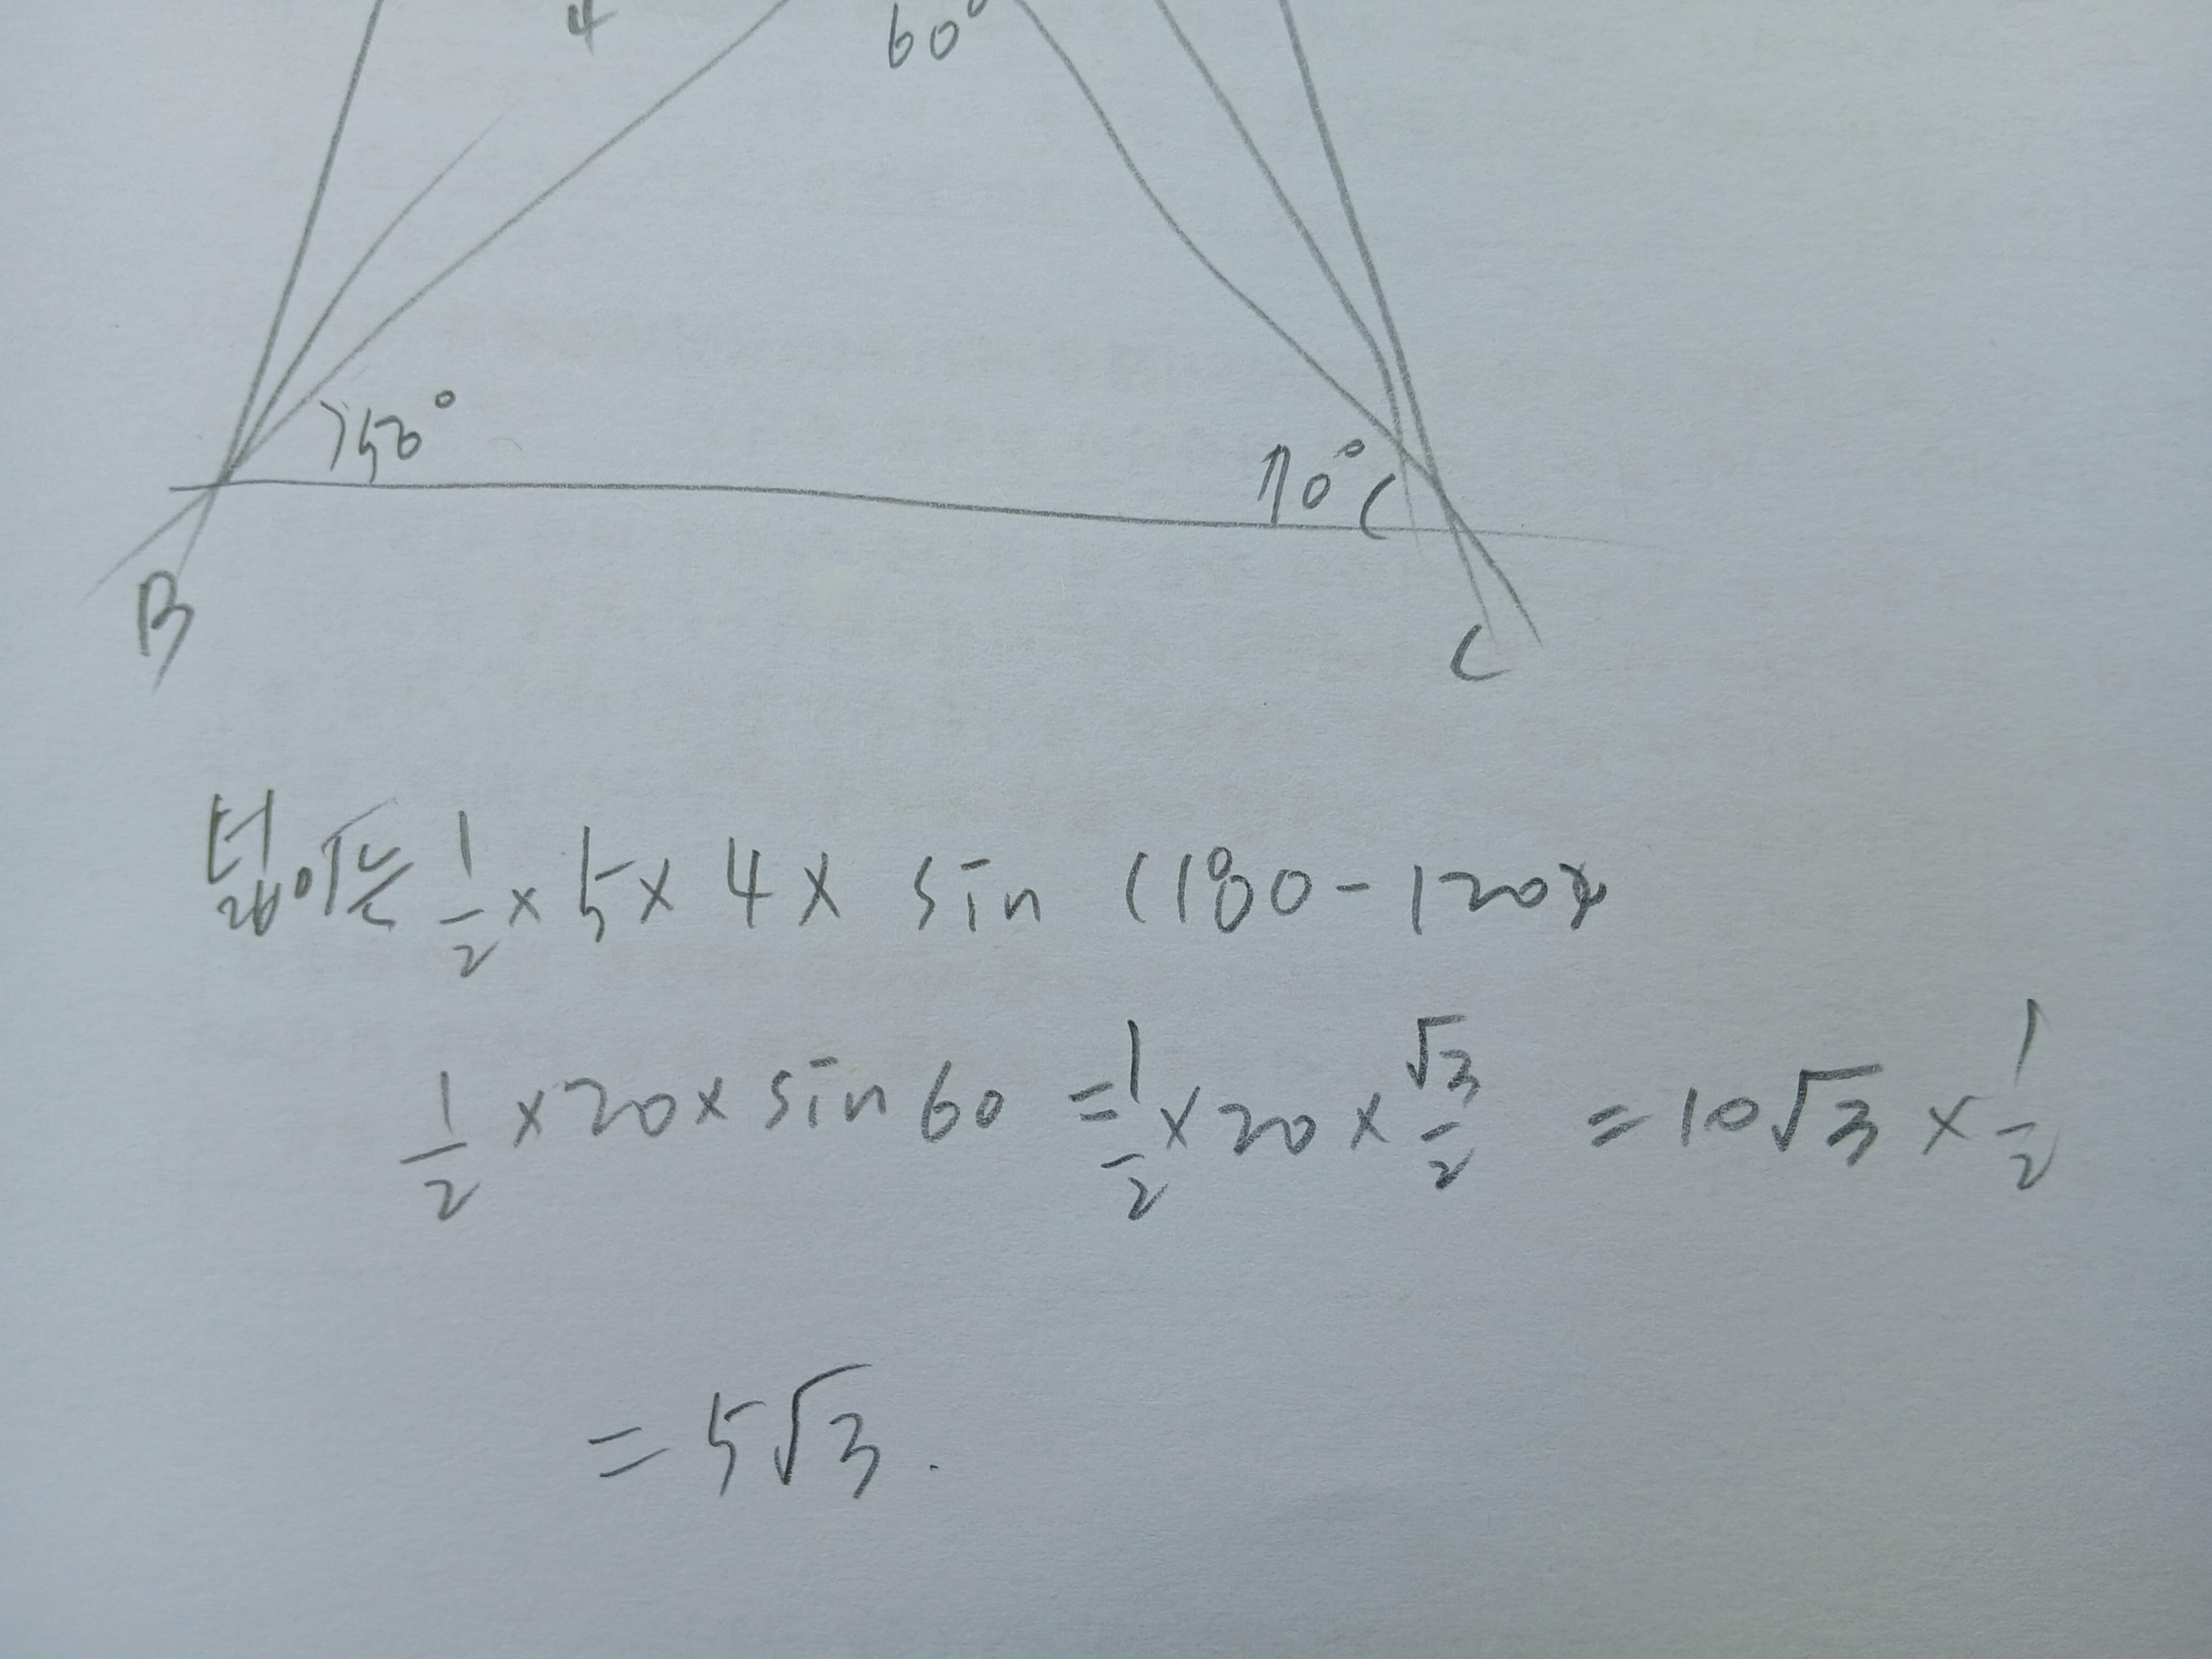 4 60°
50°
70°
B C
넓이는 1/2 × 5 × 4 × sin (180 - 120)
1/2 × 20 × sin 60 = 1/2 × 20 × √3/2 = 10√3 × 1/2
= 5√3.